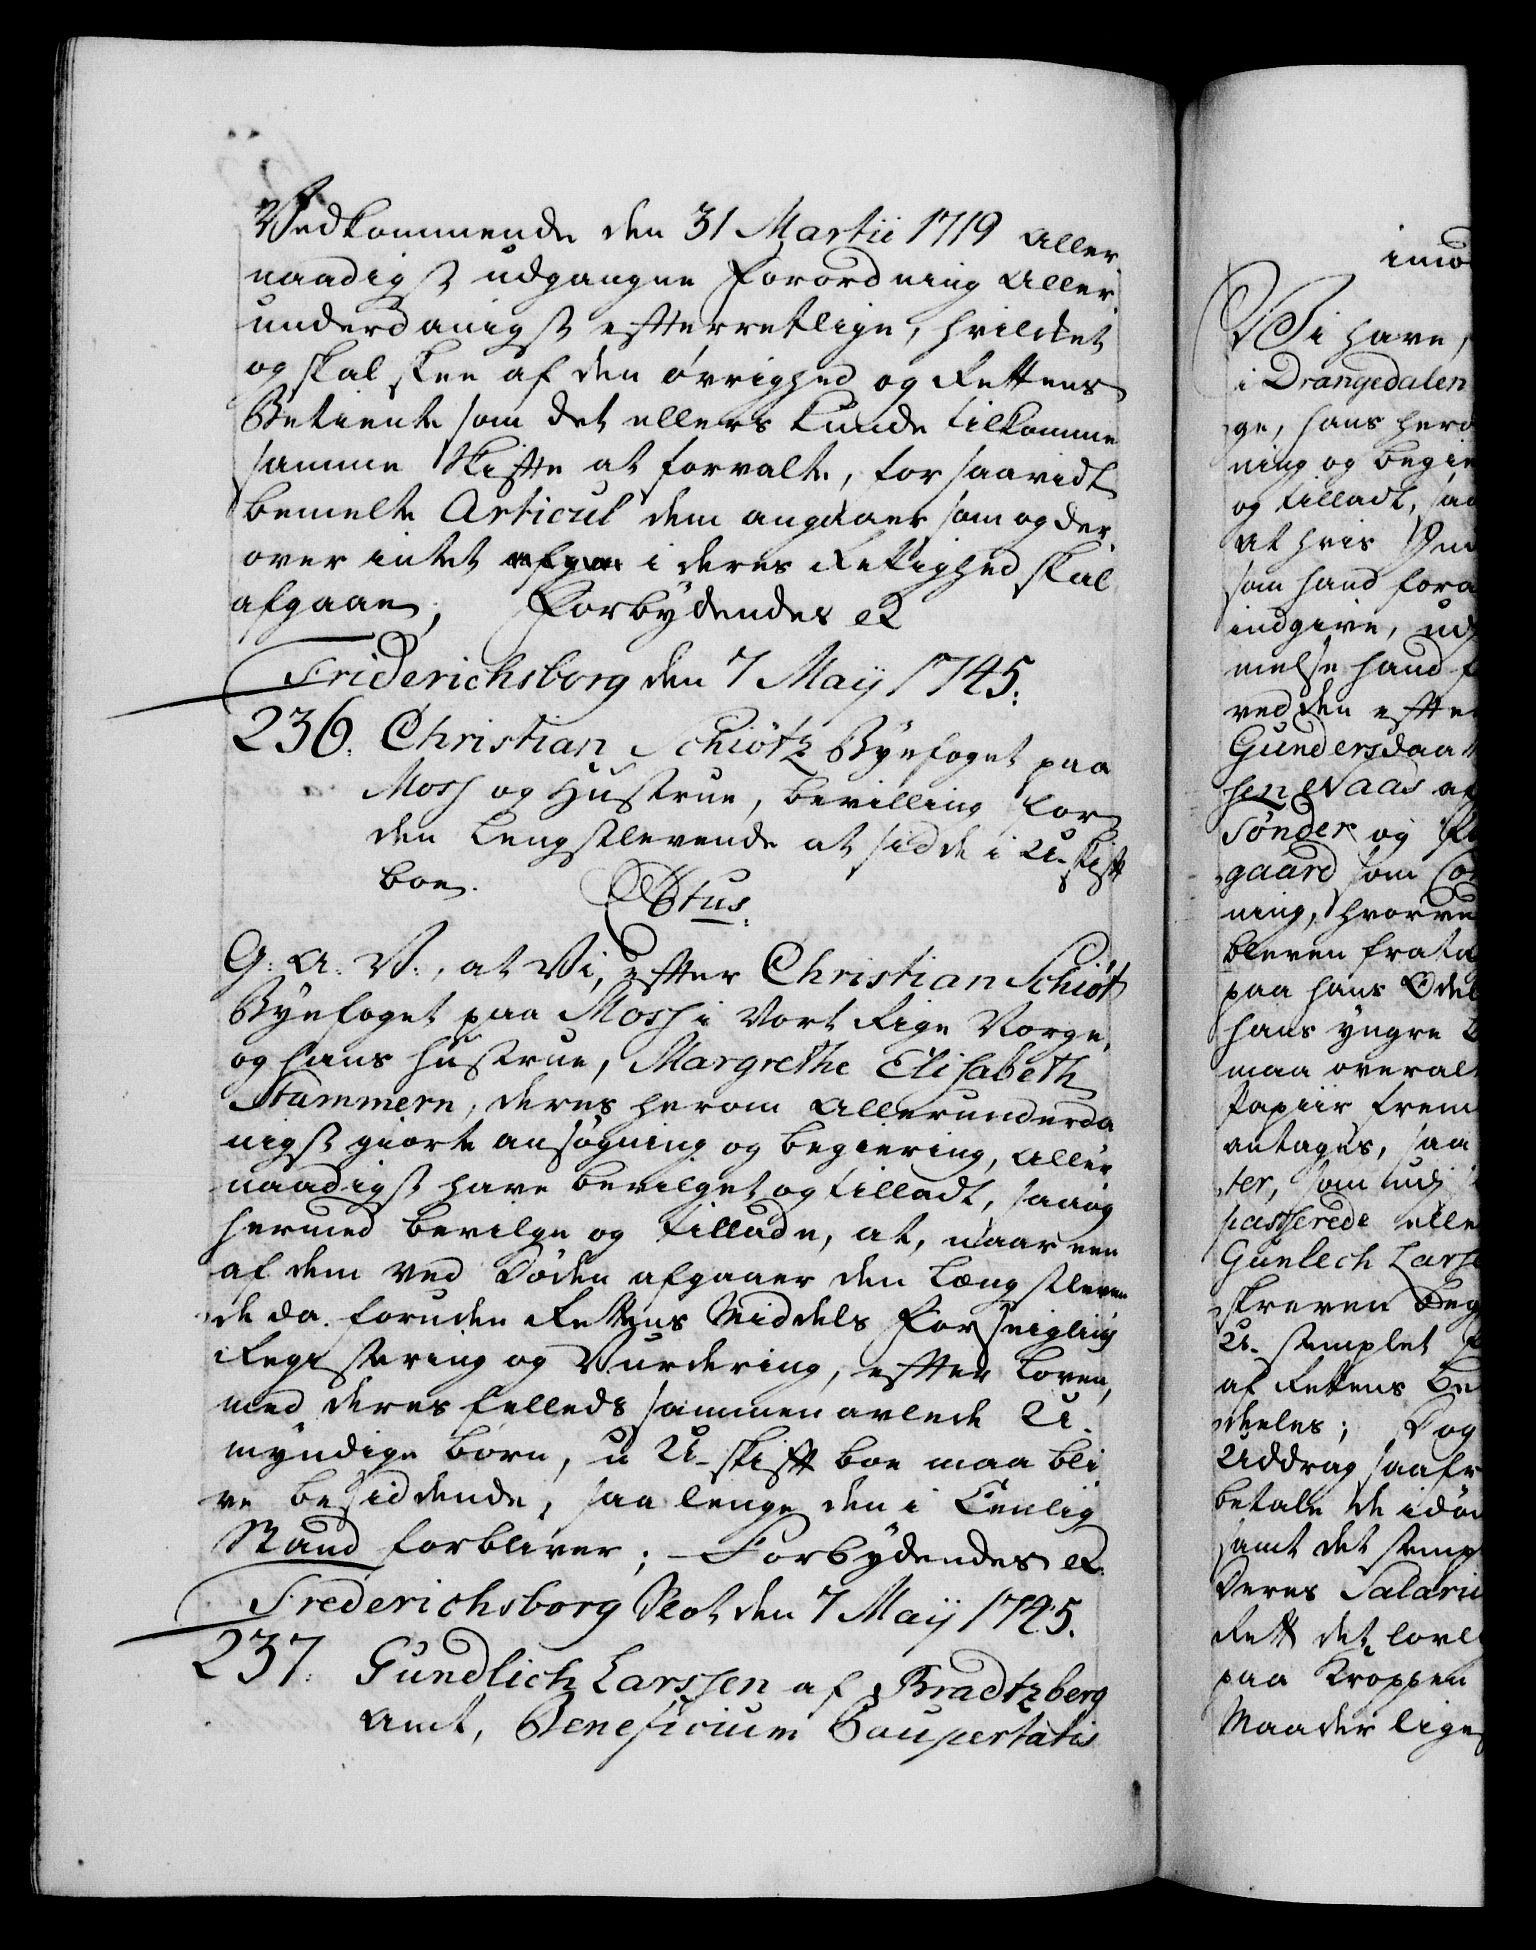 Vedkommende den 31 Martii 1719 aller
naadigst udgangne Forordning aller
underdanigst efterrettlige, hvilcket
og skal skee af den øvrighed og Rettens
Betiente som det ellers kunde tilkomme
samme Skifte at forvalte, for saavidt
bemelte Articul dem angaaer som og der
over intet i deres Rettighed skal
afgaae, Forbydendes &
Friderichsborg den 7 Maij 1745.
236. Christian Schiøtz Byefoget paa
Moss og Hustrue, bevilling for
den Lengstlevende at sidde i U-skift
boe.
G: A: V:, at Vi, efter Christian Schiøt
Byefoget paa Moss i Vort Rige Norge,
og hans hustrue, Margrethe Elisabeth
Stammern, deres herom allerunderda
nigst giorte ansøgning og begiering, aller
naadigst have bevilget og tilladt, saa og
hermed bevilge og tillade, at, naar een
af dem ved Døden afgaaer den Længstleven
de da foruden Rettens Middels Forseigling
Registering og Vurdering, efter Loven,
med deres felleds sammen avlede U-
myndige børn, u U-skift boe maa bli
ve besiddende, saa lenge den i Eenlig
Stand forbliver; Forbydendes &
Frederichsborg Slot den 7 Maij 1745.
237. Gundlich Larssen af Bradtzberg
Amt, Beneficium Paupertatis
imod
Vi have,
i Drangedalen
ge, hans her
ning og begie
og tilladt, saa
at hvis
som hand for
indgive, ud
melse hand f
ved den efte
Gundersdaat
sen Naas af
Sønder og
gaard som Co
ning, hvorve
bleven frata
paa hans Odel
hans yngre B
maa overalt
Papiir frem
antages, saa
ter, som udj
passerede elle
Gunlech Larss
skreven Beg
U-stemplet P
af Rettens Be
deeles; Dog
Uddrag saafr
betale de idøm
samt det stemp
Deres Salariu
Rett det lovl
paa Kroppen
Maader lige